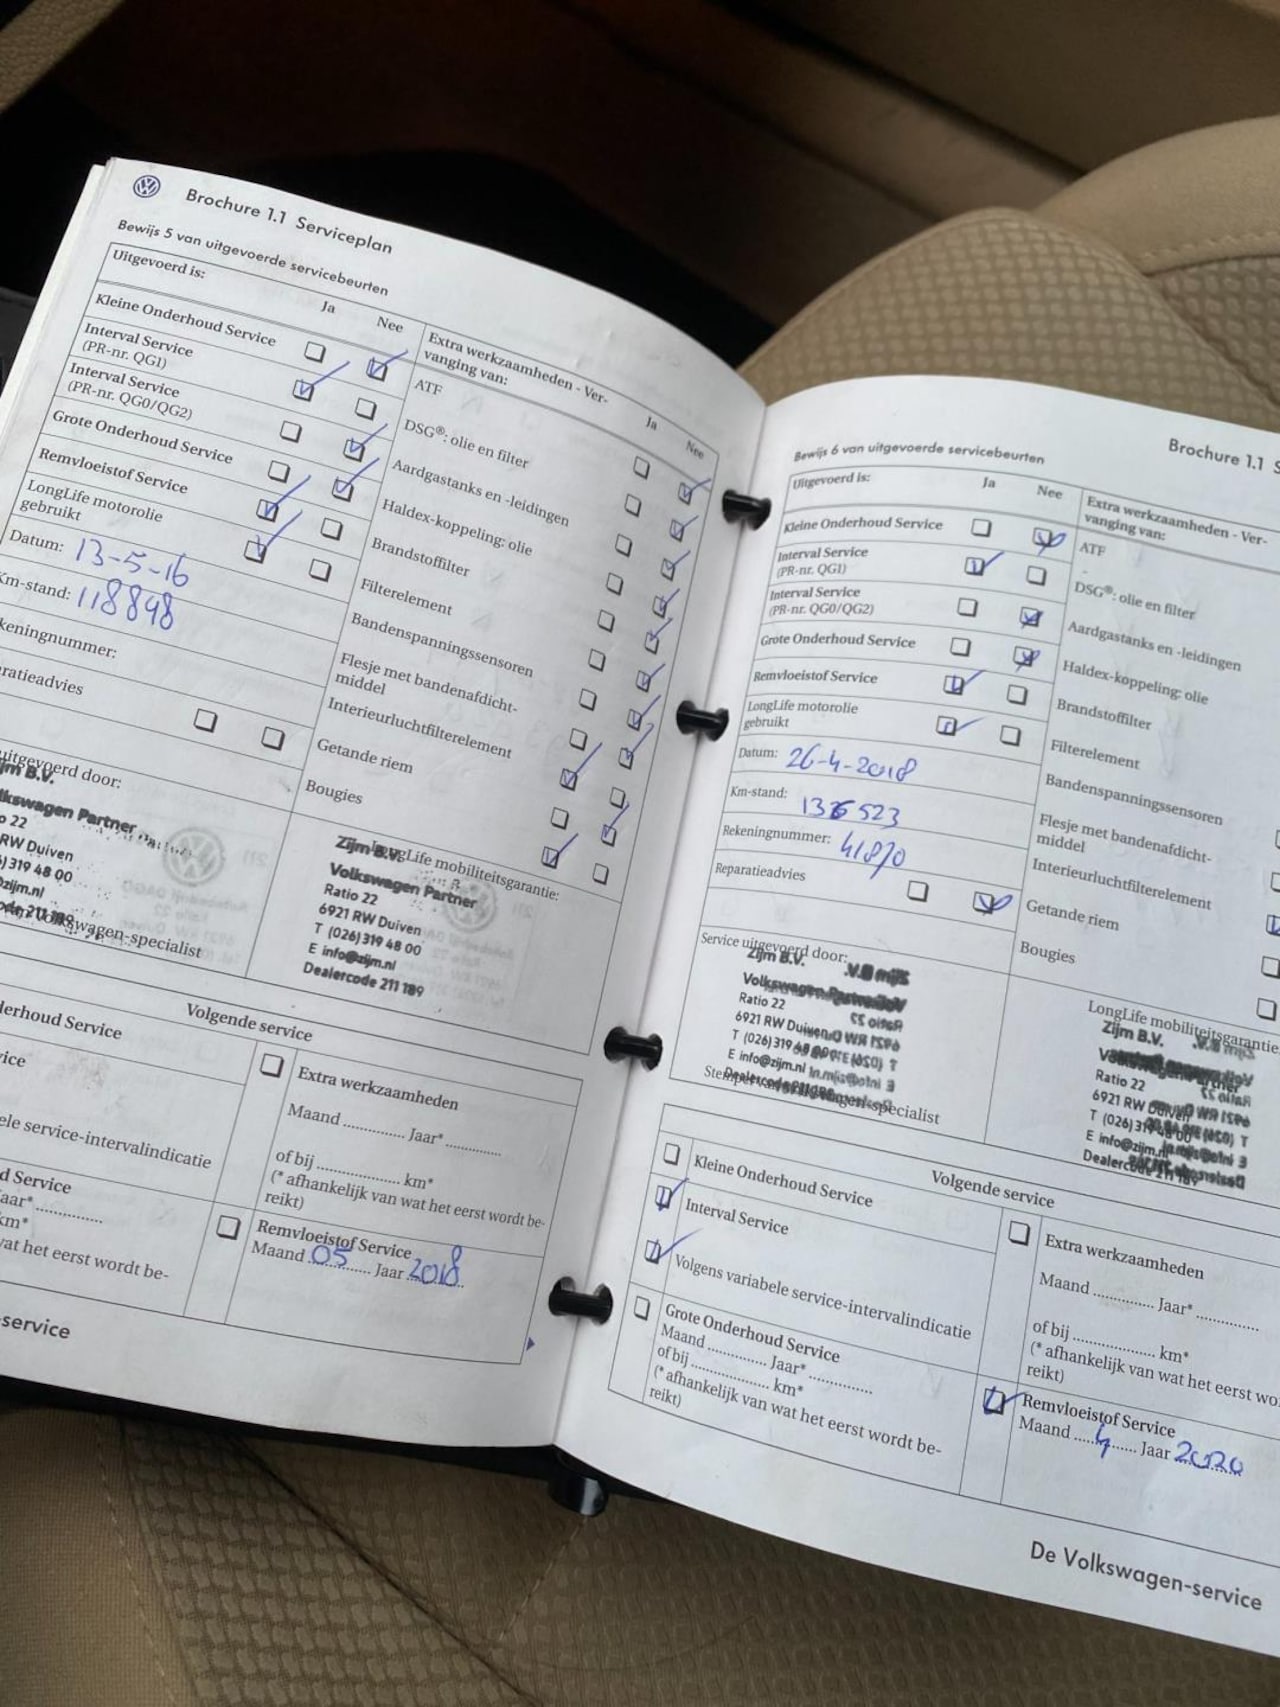 Brochure 1.1 Serviceplan
Bewijs 5 van uitgevoerde servicebeurten
Uitgevoerd is:
Ja
Nee
Kleine Onderhoud Service
Interval Service
(PR-nr. QG1)
Interval Service
(PR-nr. QG0/QG2)
Grote Onderhoud Service
Remvloeistof Service
LongLife motorolie
gebruikt
Datum: 13-5-16
Km-stand: 118848
keningnummer:
ratieadvies
Extra werkzaamheden - Ver-
vanging van:
Ja
Nee
ATF
DSG®: olie en filter
Aardgastanks en -leidingen
Haldex-koppeling: olie
Brandstoffilter
Filterelement
Bandenspanningssensoren
Flesje met bandenafdicht-
middel
Interieurluchtfilterelement
Getande riem
Bougies
uitgevoerd door:
jm B.V.
lkswagen Partner
o 22
RW Duiven
319 48 00
zijm.nl
ode 211 189
Volkswagen-specialist
LongLife mobiliteitsgarantie:
Zijm B.V.
Volkswagen Partner
Ratio 22
6921 RW Duiven
T (026) 319 48 00
E info@zijm.nl
Dealercode 211 189
Volgende service
derhoud Service
vice
ele service-intervalindicatie
d Service
aar*..............
km*
vat het eerst wordt be-
Extra werkzaamheden
Maand .............. Jaar*..............
of bij .................. km*
(* afhankelijk van wat het eerst wordt be-
reikt)
Remvloeistof Service
Maand 05 Jaar 2018
-service
Brochure 1.1 S
Bewijs 6 van uitgevoerde servicebeurten
Uitgevoerd is:
Ja
Nee
Kleine Onderhoud Service
Interval Service
(PR-nr. QG1)
Interval Service
(PR-nr. QG0/QG2)
Grote Onderhoud Service
Remvloeistof Service
LongLife motorolie
gebruikt
Datum: 26-4-2018
Km-stand: 136523
Rekeningnummer: 41870
Reparatieadvies
Extra werkzaamheden - Ver-
vanging van:
ATF
DSG®: olie en filter
Aardgastanks en -leidingen
Haldex-koppeling: olie
Brandstoffilter
Filterelement
Bandenspanningssensoren
Flesje met bandenafdicht-
middel
Interieurluchtfilterelement
Getande riem
Bougies
Service uitgevoerd door:
Zijm B.V.
Volkswagen
Ratio 22
6921 RW Duiven
T (026) 319
E info@zijm.nl
Dealercode
specialist
LongLife mobiliteitsgarantie
Zijm B.V.
Ratio 22
6921 RW Duiven
T (026) 319 48 00
E info@zijm.nl
Dealercode 211 189
Volgende service
Kleine Onderhoud Service
Interval Service
Volgens variabele service-intervalindicatie
Grote Onderhoud Service
Maand .............. Jaar*..............
of bij .................. km*
(* afhankelijk van wat het eerst wordt be-
reikt)
Extra werkzaamheden
Maand .............. Jaar*..............
of bij .................. km*
(* afhankelijk van wat het eerst wo
reikt)
Remvloeistof Service
Maand 4 Jaar 2020
De Volkswagen-service